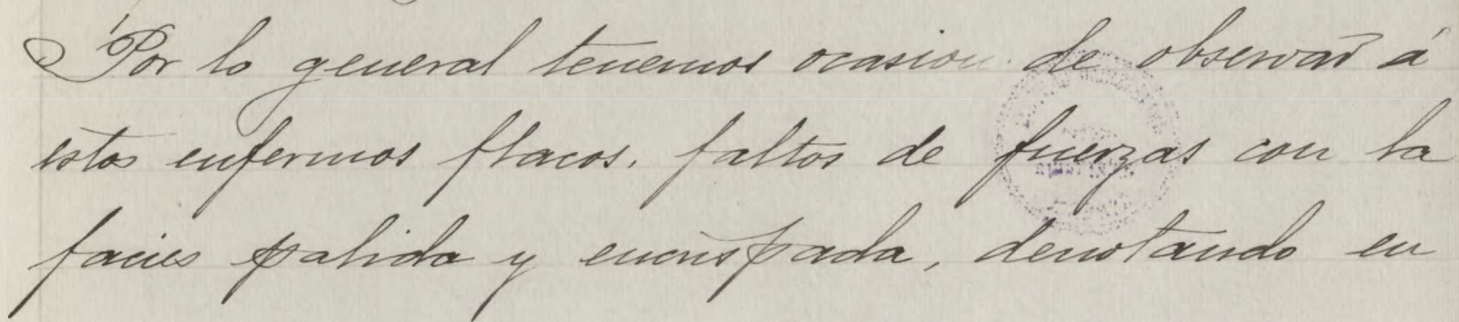 Por lo general tenemos ocasion de observar á
estos enfermos flacos, faltos de fuerzas con la
facies palida y encrispada, denotando en